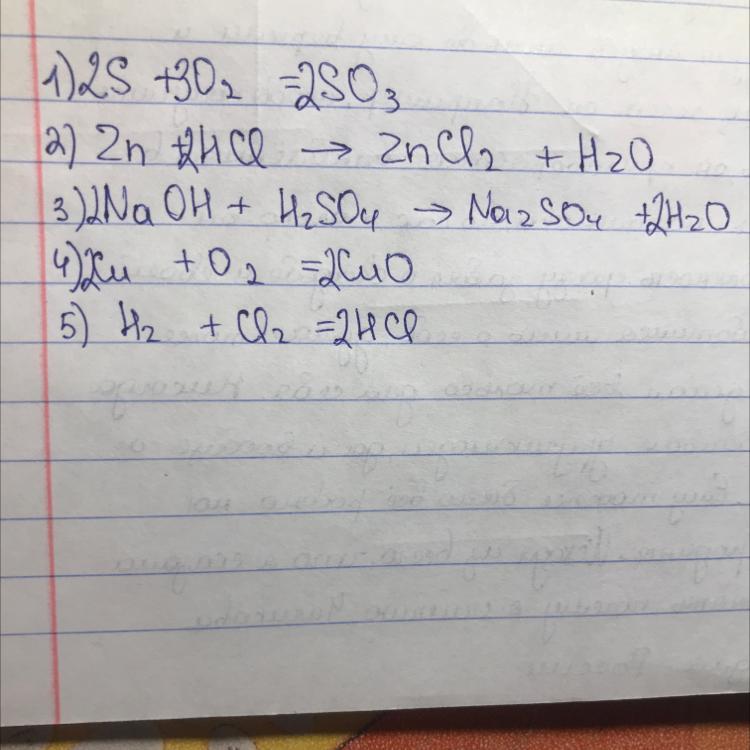 1) 2S + 3O₂ = 2SO₃
2) Zn + 2HCl → ZnCl₂ + H₂O
3) 2NaOH + H₂SO₄ → Na₂SO₄ + 2H₂O
4) 2Cu + O₂ = 2CuO
5) H₂ + Cl₂ = 2HCl